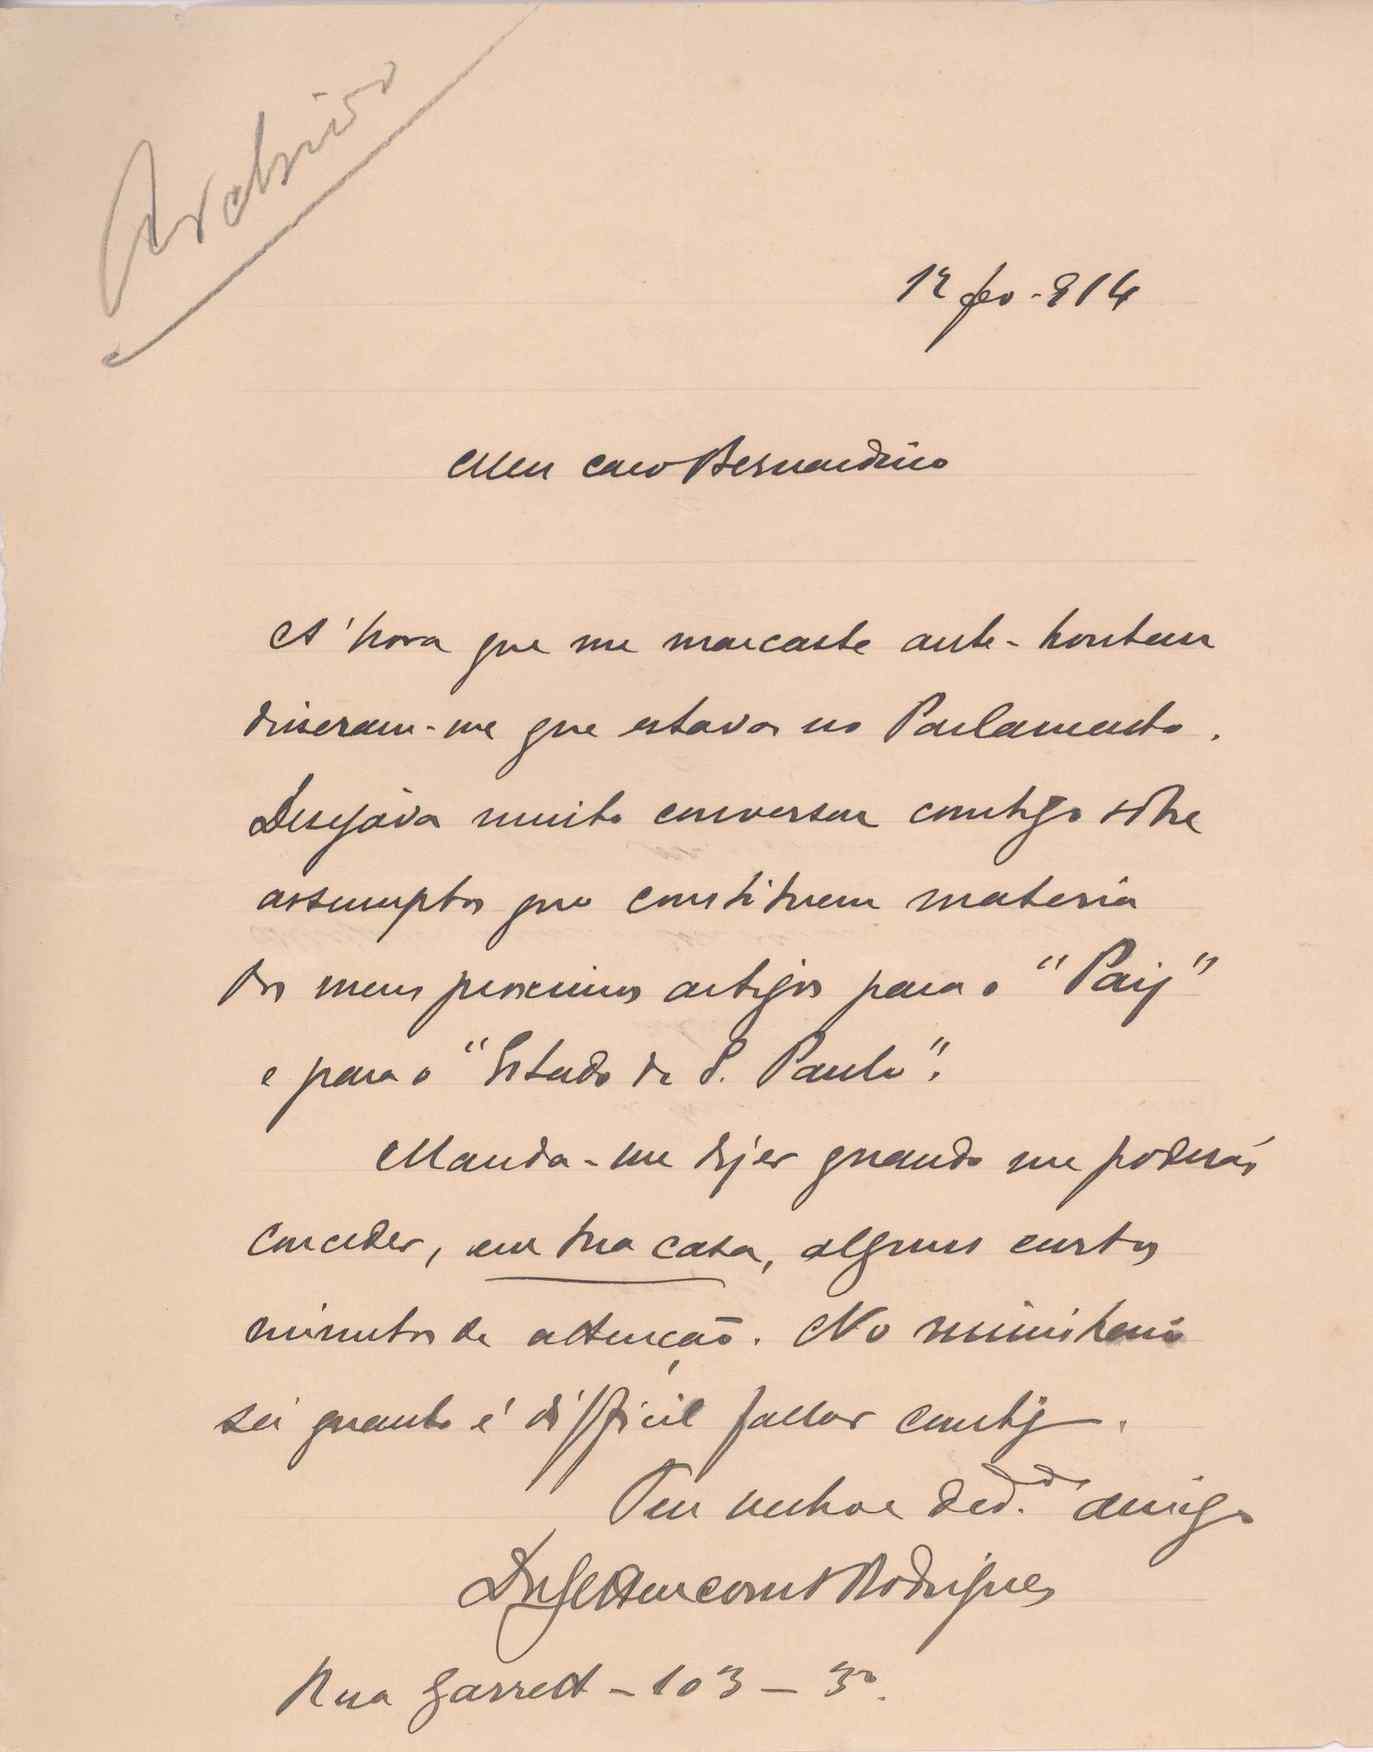 Archivo
12 fev - 914
Meu caro Bernardino
A' hora que me marcaste ante-hontem
disseram-me que estavas no Parlamento.
Desejava muito conversar comtigo sobre
assumptos que constituem materia
dos meus proximos artigos para o "Paiz"
e para o "Estado de S. Paulo".
Manda-me dizer quando me poderás
conceder, em tua casa, alguns curtos
minutos de attenção. No ministerio
sei quanto é difficil fallar comtigo.
Teu velho e ded.do amigo
Bettencourt Rodrigues
Rua Garrett - 103 - 3º.